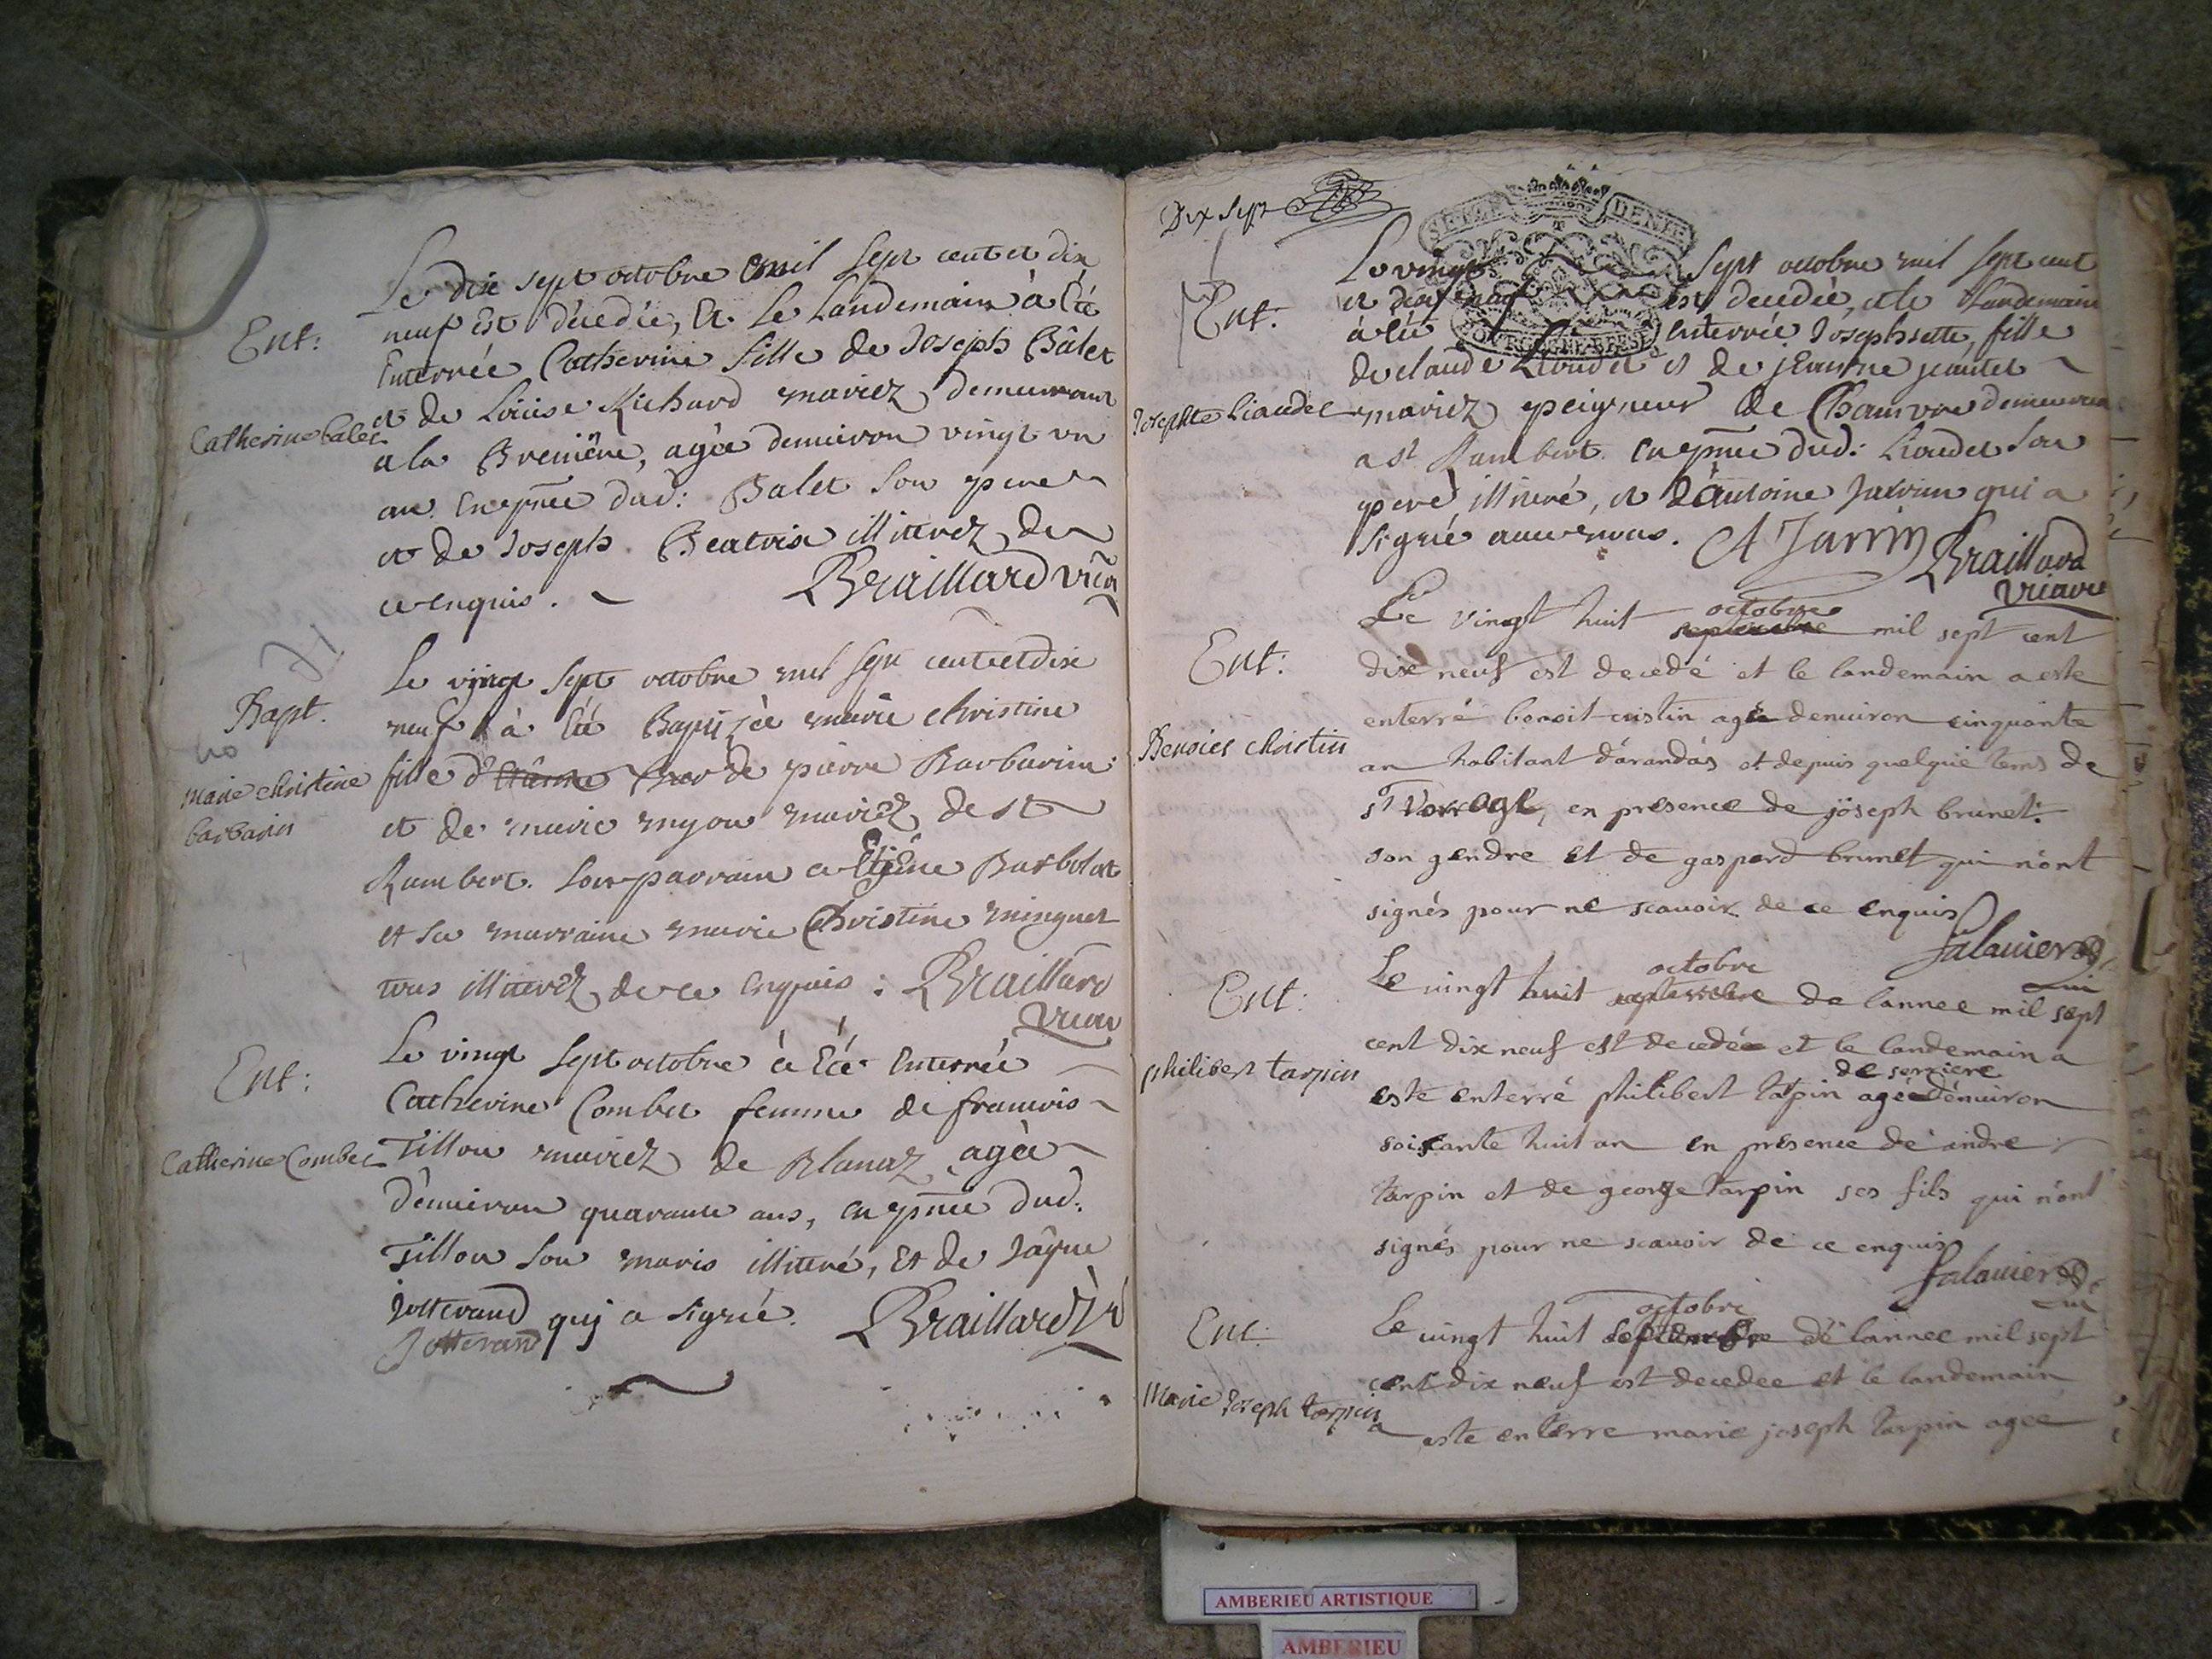 Le dix sept octobre mil sept cent et dix
neuf Est décedée, Et Le Landemain à été
Ent:
Enterrée Catherine fille de Joseph Bâlet
et de Loüise Richard mariez demeurant
Catherine balet
a la Breniëre, agée denuiron vingt vn
an. En epñce dud: Balet Son pere
et de Joseph Beatrix illiterez de
ce enquis. Braillard vic̃
Le vijngt Sept octobre mil sept cent et dix
Bapt.
neuf à été Baptizée marie christine
fille d' Etienne de pierre Barbarin
marie christine
barbarin
et de marie myon mariez de St
Rambert. Son parrain Etiene Barbolat
et sa marraine marie Christine minguet
tous illiterez de ce enquis: Braillard
vicar
Le vingt Sept octobre à été Enterrée
Ent:
Catherine Combet femme de francois
Catherine Combet
Tillon mariez de Blanaz agée
d'enuiron quarante ans, en epñce dud.
Tillon Son maris illiteré, Et de Jâque
Jotterand quj a Signé. Braillard
Jotterand
Dix Sept
SEIZE DENIE
BOURGOGNE BRESSE
Le vingt Sept octobre mil sept cent
Ent:
et dix neuf est decedée, et le Landemain
à été Enterrée Josephsette, fille
de claude Liaudet et de jEanne jeantet
Josephte Liaudet
mariez peigneur de Chamvre demeurant
a St Rambert. En epñce dud: Liaudet Son
pere illiteré, et d'antoine Jarrin qui a
Signé auec nous. A Jarrin Braillard
vicaire
Le vingt huit septembre octobre mil sept cent
Ent:
dix neuf est decedé et le landemain a este
enterré benoit cristin agée denuiron cinquante
Benoict christin
an habitant d'arandas et depuis quelque tems de
en presence de joseph brunet
son gendre et de gaspard brunet qui n'ont
signés pour ne scauoir de ce enquis
falauier
Le uingt huit septembre octobre de lannee mil sept
Ent:
cent dix neuf est decedée et le landemain a
de serriere
philibert tarpin
este enterré philibert tarpin agée d'enuiron
soixante huit an en presence de andre
tarpin et de george tarpin ses fils qui n'ont
signés pour ne scauoir de ce enquis
falauier
Le uingt huit septembre octobre de lannee mil sept
Ent:
cent dix neuf est decedee et le landemain
Marie Joseph tarpin
a este enterre marie joseph tarpin agee
AMBERIEU ARTISTIQUE
AMBERIEU